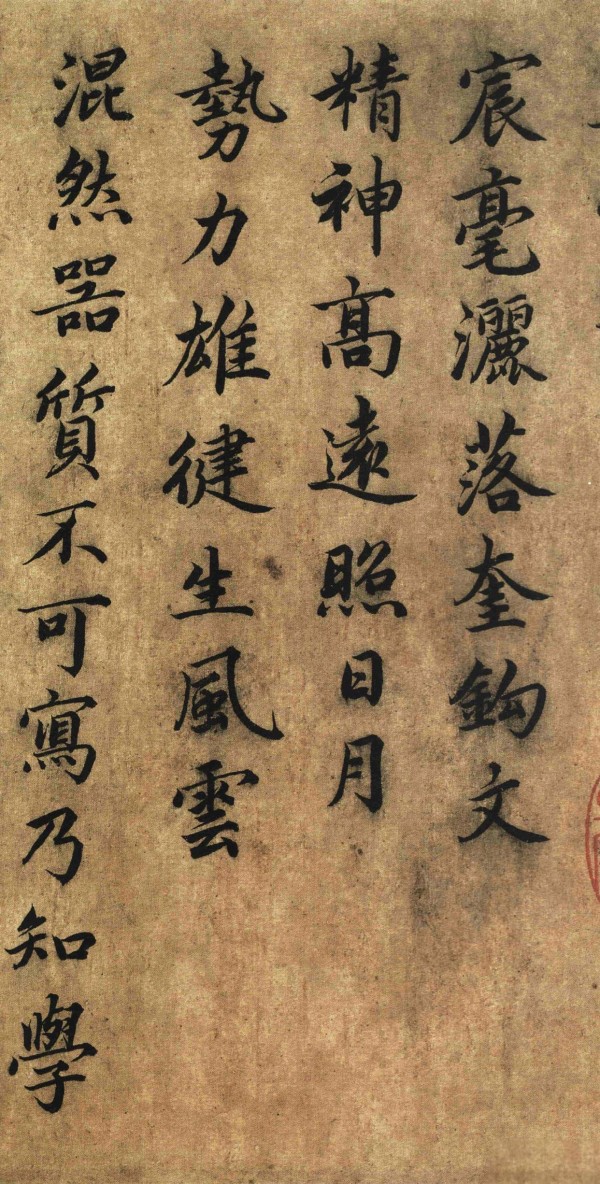 宸毫灑落奎鈎文
精神高遠照日月
勢力雄健生風雲
混然器質不可寫乃知學